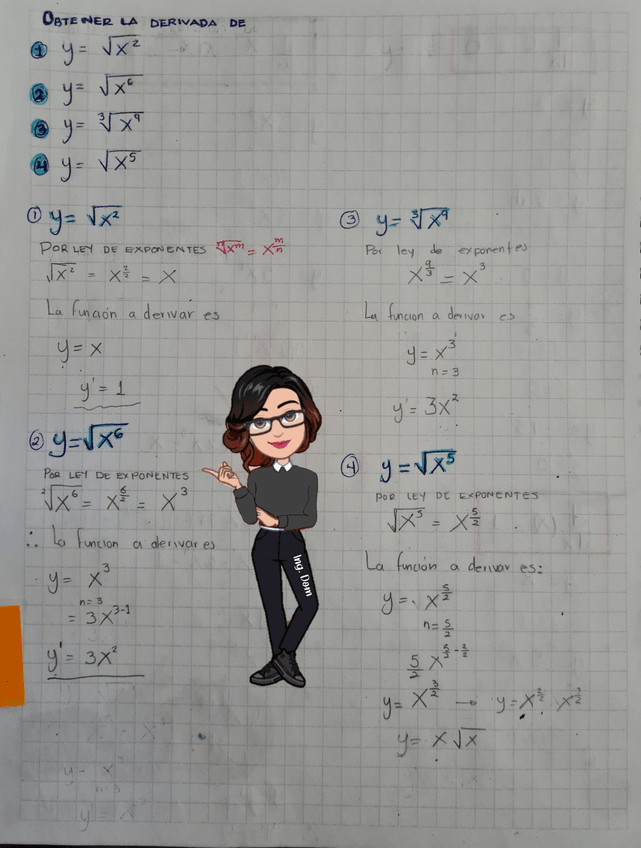 OBTENER LA DERIVADA DE
1 y = √x²
2 y = √x⁶
3 y = ∛x⁹
4 y = √x⁵
① y = √x²
POR LEY DE EXPONENTES ⁿ√xᵐ = x^(m/n)
√x² = x^(2/2) = x
La función a derivar es
y = x
y' = 1
② y=√x⁶
POR LEY DE EXPONENTES
²√x⁶ = x^(6/2) = x³
∴ La funcion a derivar es
y = x³
n=3
= 3x³⁻¹
y' = 3x²
③ y = ∛x⁹
Por ley de exponentes
x^(9/3) = x³
La funcion a derivar es
y = x³
n = 3
y' = 3x²
④ y = √x⁵
POR LEY DE EXPONENTES
√x⁵ = x^(5/2)
La función a derivar es:
y = x^(5/2)
n = 5/2
5/2 x^(5/2 - 2/2)
y = x^(3/2) → y = x^(2/2) x^(1/2)
y = x√x
Ing. Dom